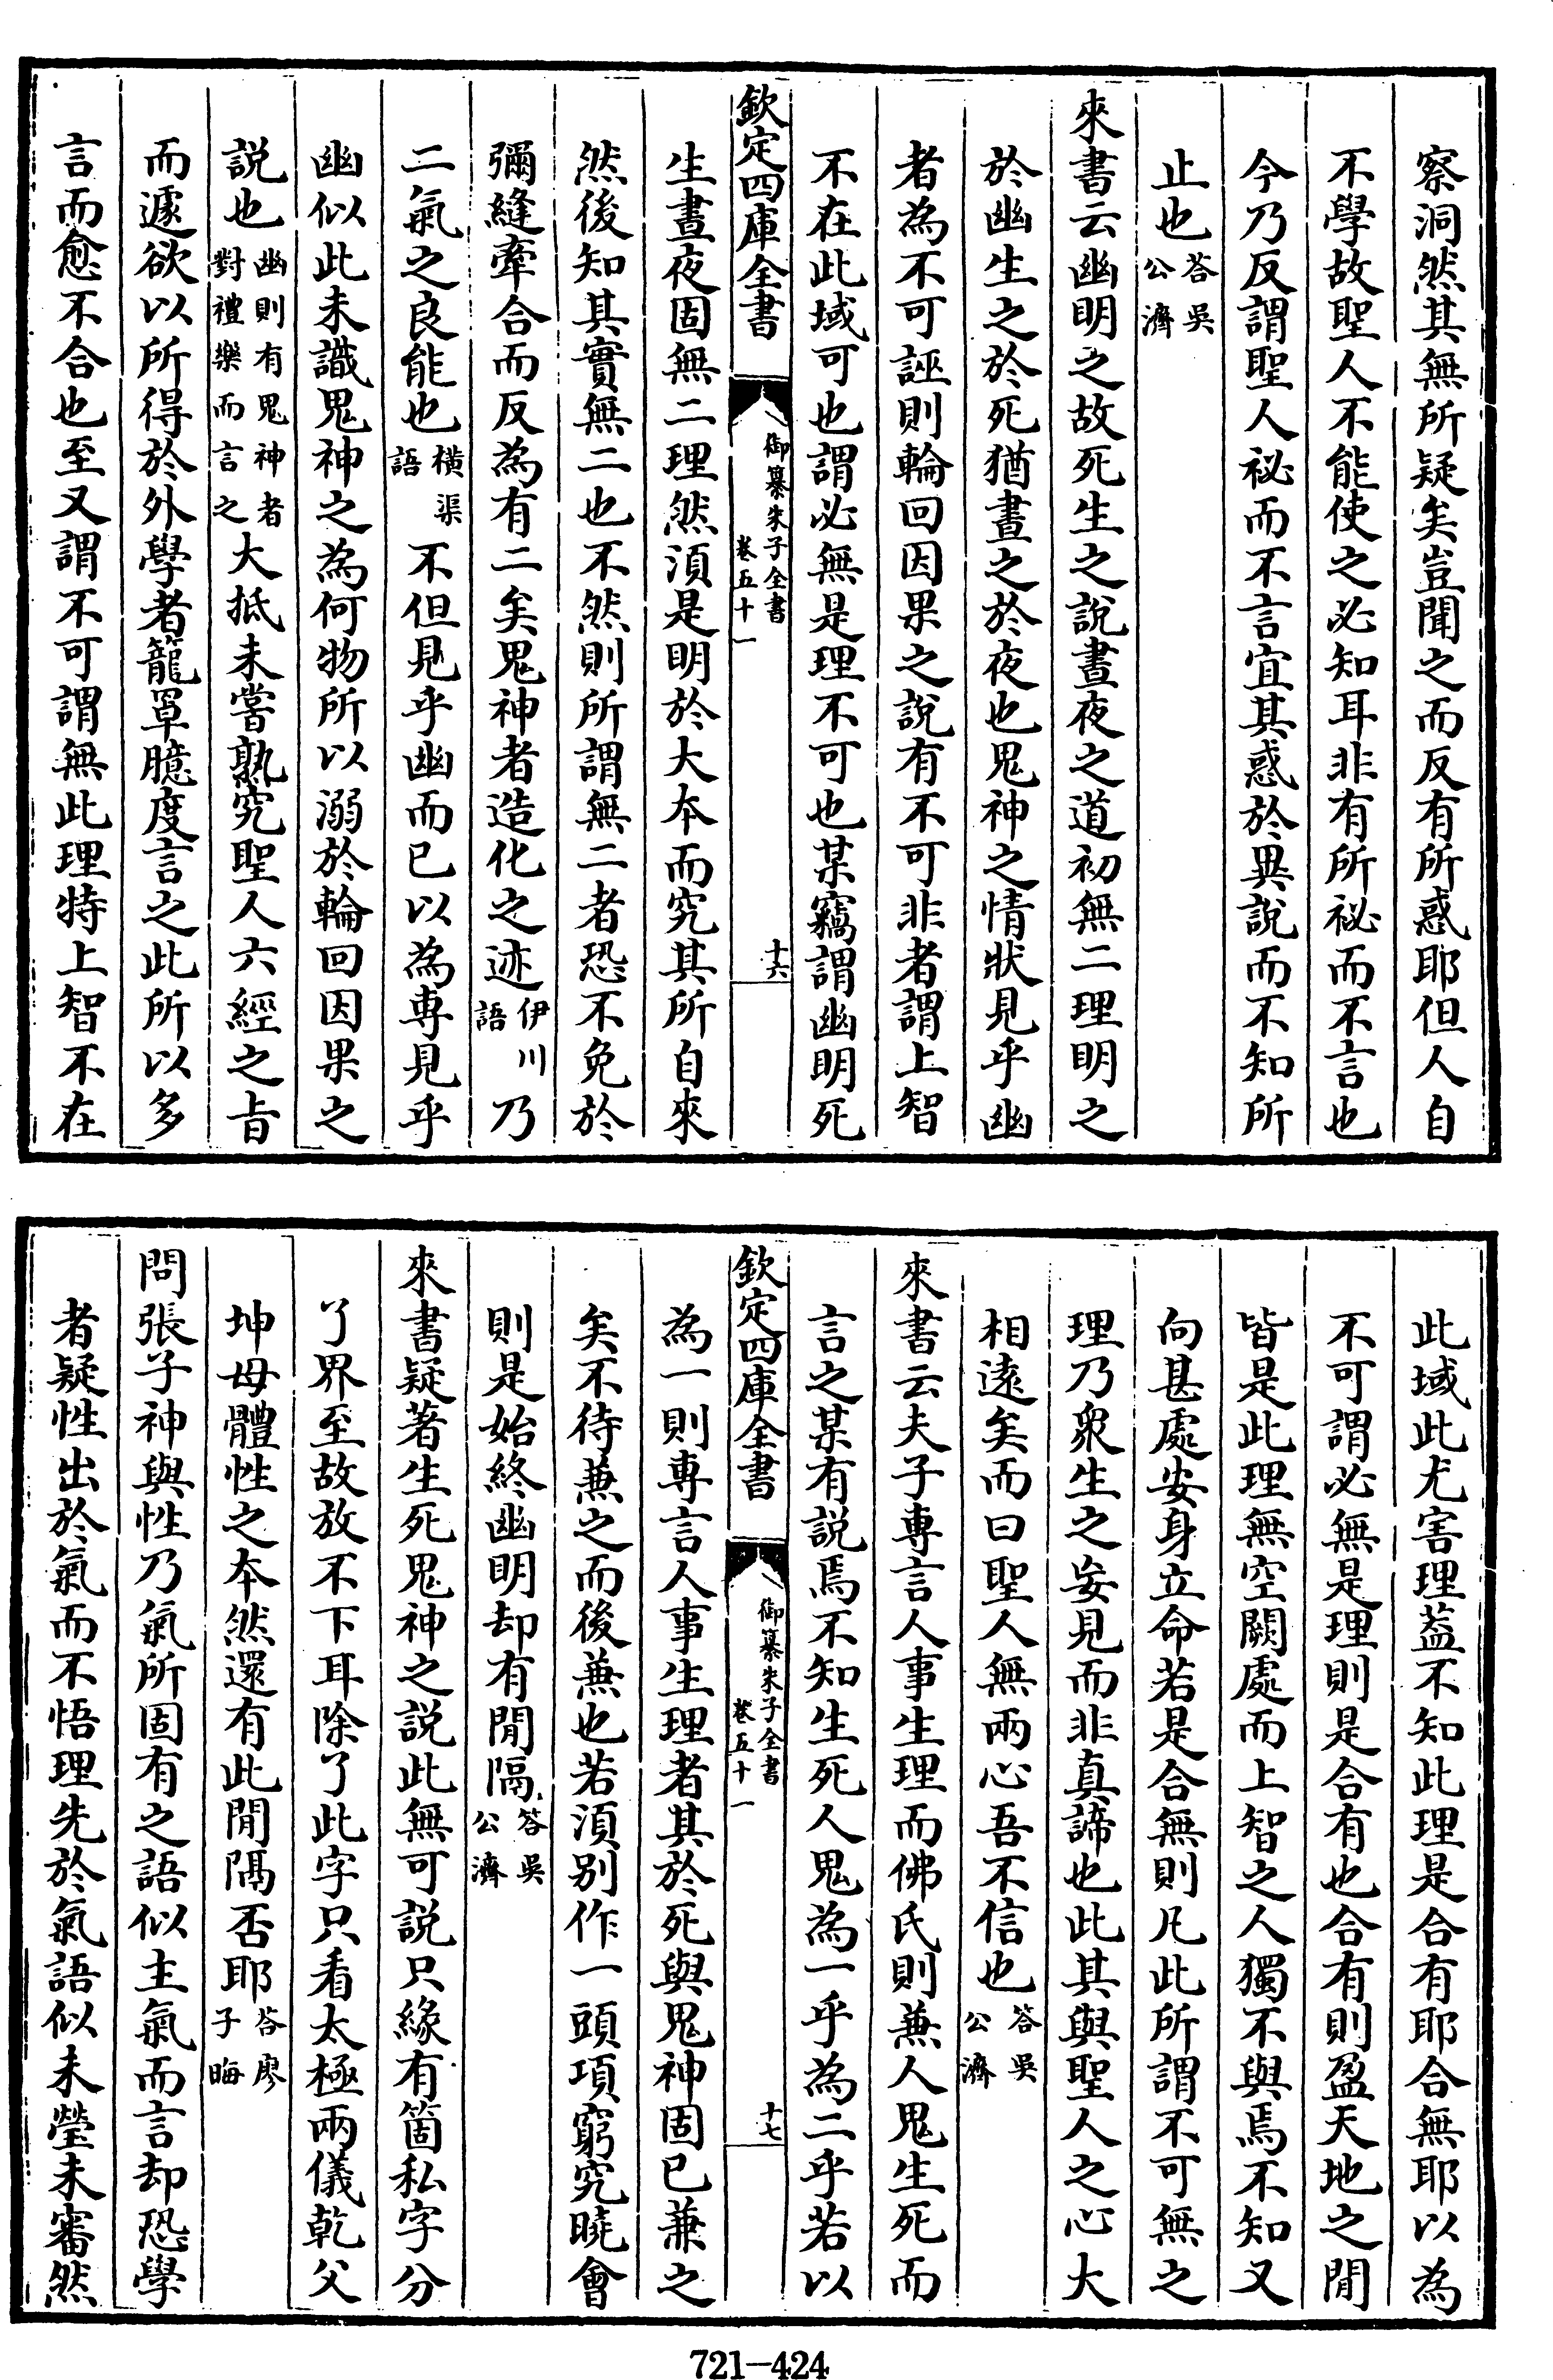 察洞然其無所疑矣豈聞之而反有所惑耶但人自
不學故聖人不能使之必知耳非有所祕而不言也
今乃反謂聖人祕而不言宜其惑於異說而不知所
止也答吳公濟
來書云幽明之故死生之說晝夜之道初無二理明之
於幽生之於死猶晝之於夜也鬼神之情狀見乎幽
者為不可誣則輪回因果之說有不可非者謂上智
不在此域可也謂必無是理不可也某竊謂幽明死
欽定四庫全書 御纂朱子全書 卷五十一 十六
生晝夜固無二理然須是明於大本而究其所自來
然後知其實無二也不然則所謂無二者恐不免於
彌縫牽合而反為有二矣鬼神者造化之迹伊川語乃
二氣之良能也橫渠語不但見乎幽而已以為專見乎
幽似此未識鬼神之為何物所以溺於輪回因果之
説也幽則有鬼神者對禮樂而言之大抵未嘗熟究聖人六經之㫖
而遽欲以所得於外學者籠罩臆度言之此所以多
言而愈不合也至又謂不可謂無此理特上智不在
此域此尤害理葢不知此理是合有耶合無耶以為
不可謂必無是理則是合有也合有則盈天地之閒
皆是此理無空闕處而上智之人獨不與焉不知又
向甚處安身立命若是合無則凡此所謂不可無之
理乃衆生之妄見而非真諦也此其與聖人之心大
相遠矣而曰聖人無兩心吾不信也答吳公濟
來書云夫子專言人事生理而佛氏則兼人鬼生死而
言之某有説焉不知生死人鬼為一乎為二乎若以
欽定四庫全書 御纂朱子全書 卷五十一 十七
為一則專言人事生理者其於死與鬼神固已兼之
矣不待兼之而後兼也若須別作一頭項窮究曉會
則是始終幽明却有閒隔答吳公濟
來書疑著生死鬼神之説此無可説只緣有箇私字分
了界至故放不下耳除了此字只看太極兩儀乾父
坤母體性之本然還有此閒隔否耶答廖子晦
問張子神與性乃氣所固有之語似主氣而言却恐學
者疑性出於氣而不悟理先於氣語似未瑩未審然
721—424